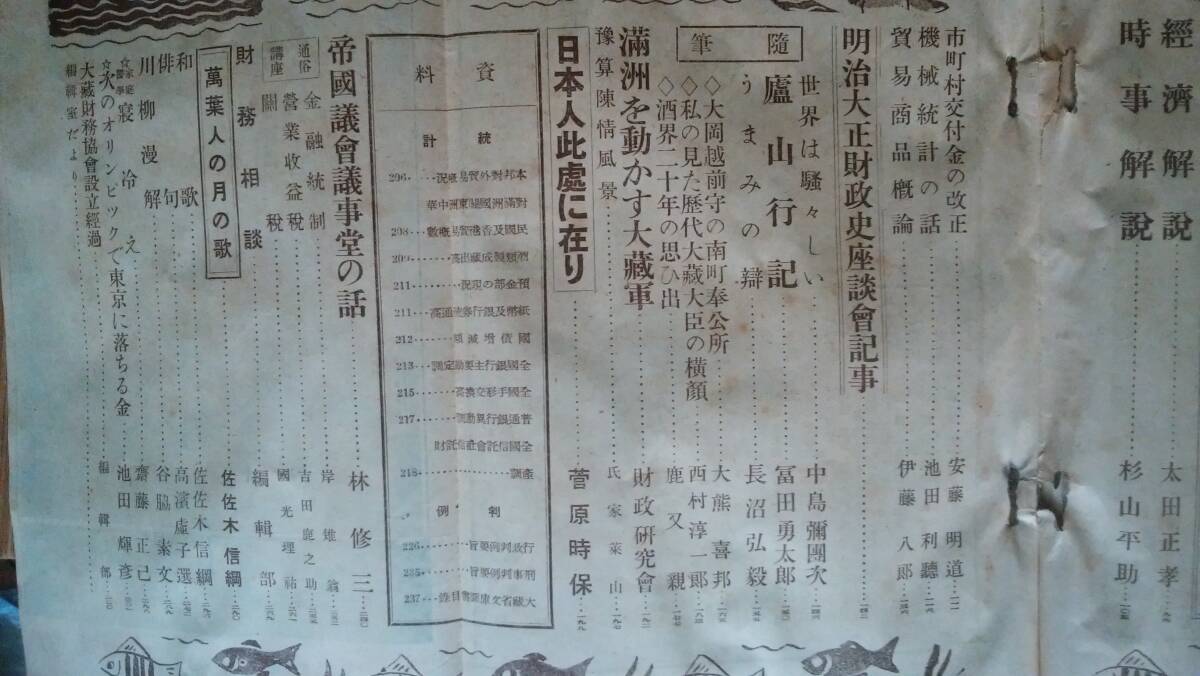 經濟解說 太田正孝
時事解說 杉山平助
市町村交付金の改正 安藤明道
機械統計の話 池田利聰
貿易商品概論 伊藤八郎
明治大正財政史座談會記事
世界は騷々しい 中島彌團次
隨筆
廬山行記 冨田勇太郎
うまみの辯 長沼弘毅
◇大岡越前守の南町奉公所 大熊喜邦
◇私の見た歷代大藏大臣の橫顏 西村淳一郎
◇酒界二十年の思ひ出 鹿又親
滿洲を動かす大藏軍 財政研究會
豫算陳情風景 氏家萊山
日本人此處に在り 菅原時保
資料
統計
本邦對外貿易槪況 206
對滿洲國關東洲中華
民國及香港貿易槪數 208
酒類製成藏出高 209
預金部の現況 211
紙幣及銀行券流通高 211
國債增減額 212
全國銀行主要勘定調 213
全國手形交換高 215
普通銀行異動調 217
全國信託會社信託財
產調 218
判例
行政判例要旨 226
刑事判例要旨 235
大藏省文庫圖書目錄 237
帝國議會議事堂の話 林修三
通俗講座
金融統制 岸雄
營業收益稅 吉田鹿之助
關稅 國光理祐
財務相談 編輯部
萬葉人の月の歌 佐佐木信綱
和歌 佐佐木信綱
俳句 高濱虛子選
川柳漫解 谷脇素文
☆家庭醫學 寢冷え 齋藤正己
☆次のオリンピックで東京に落ちる金 池田輝彥
大藏財務協會設立經過
編輯室だより 編輯部